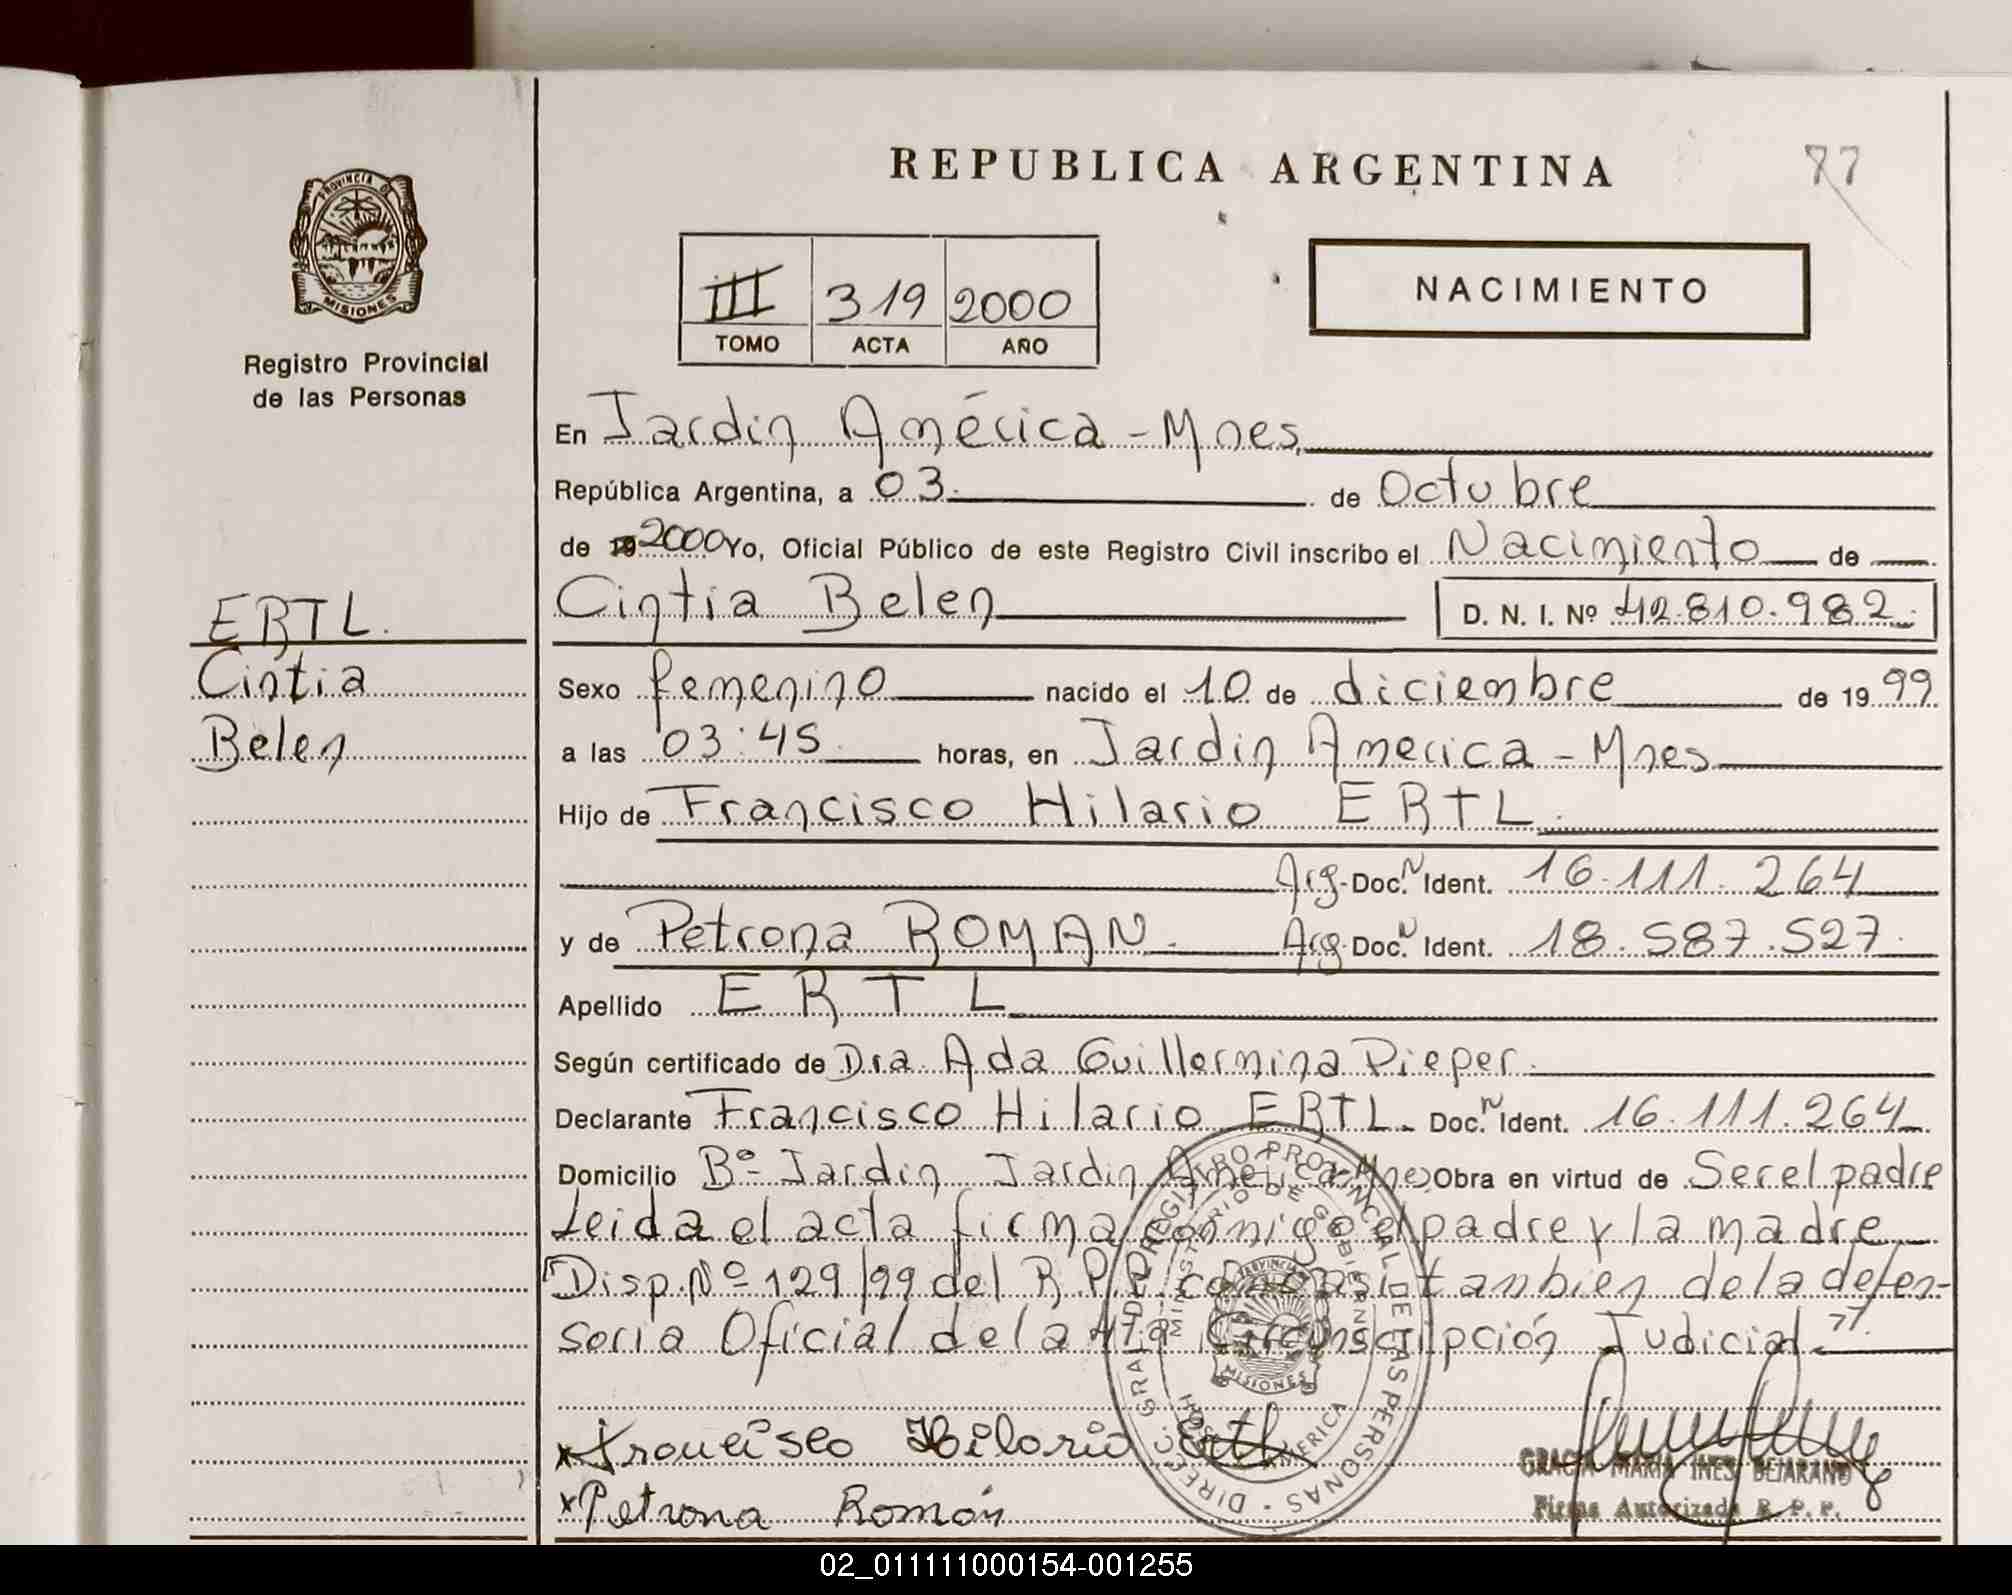 REPUBLICA ARGENTINA
77
PROVINCIA DE
MISIONES
Registro Provincial
de las Personas
III 319 2000
TOMO ACTA AÑO
NACIMIENTO
En Jardin América - Mnes.
República Argentina, a 03. de Octubre
de 19 2000 Yo, Oficial Público de este Registro Civil inscribo el Nacimiento de
Cintia Belen D. N. I. Nº 42.810.982.
ERTL.
Cintia
Belen
Sexo femenino nacido el 10 de diciembre de 19 99
a las 03:45 horas, en Jardin America - Mnes
Hijo de Francisco Hilario ERTL.
Arg. Doc. N Ident. 16.111.264
y de Petrona ROMAN. Arg. Doc. N Ident. 18.587.527.
Apellido ERTL
Según certificado de Dra. Ada Guillermina Pieper.
Declarante Francisco Hilario ERTL. Doc. N Ident. 16.111.264.
Domicilio Bº Jardin Jardin América-Mnes Obra en virtud de Ser el padre
Leida el acta firma conmigo el padre y la madre
Disp. Nº 129/99 del R.P.P. como asi tanbien de la defen-
soria Oficial de la 4ta Circunscripción Judicial.
DIREC. GRAL. DEL REGISTRO PROVINCIAL DE LAS PERSONAS
MINISTERIO DE GOBIERNO
AMERICA
PROVINCIA
MISIONES
x Francisco Hilario Ertl
x Petrona Román
GRACIA MARIA INES BEJARANO
Firma Autorizada R. P. P.
02_011111000154-001255